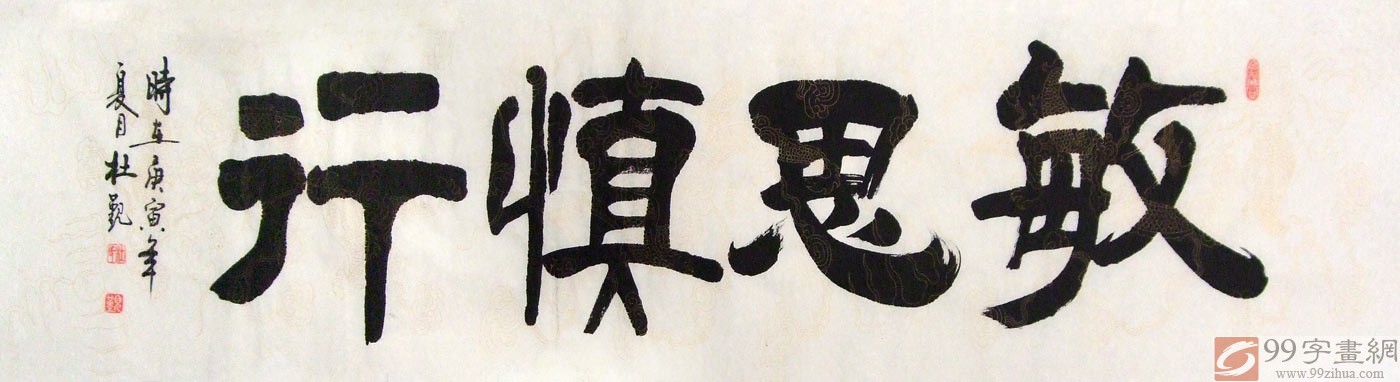 敏思慎行
時在庚寅年
夏月杜觀
99字畫網
www.99zihua.com